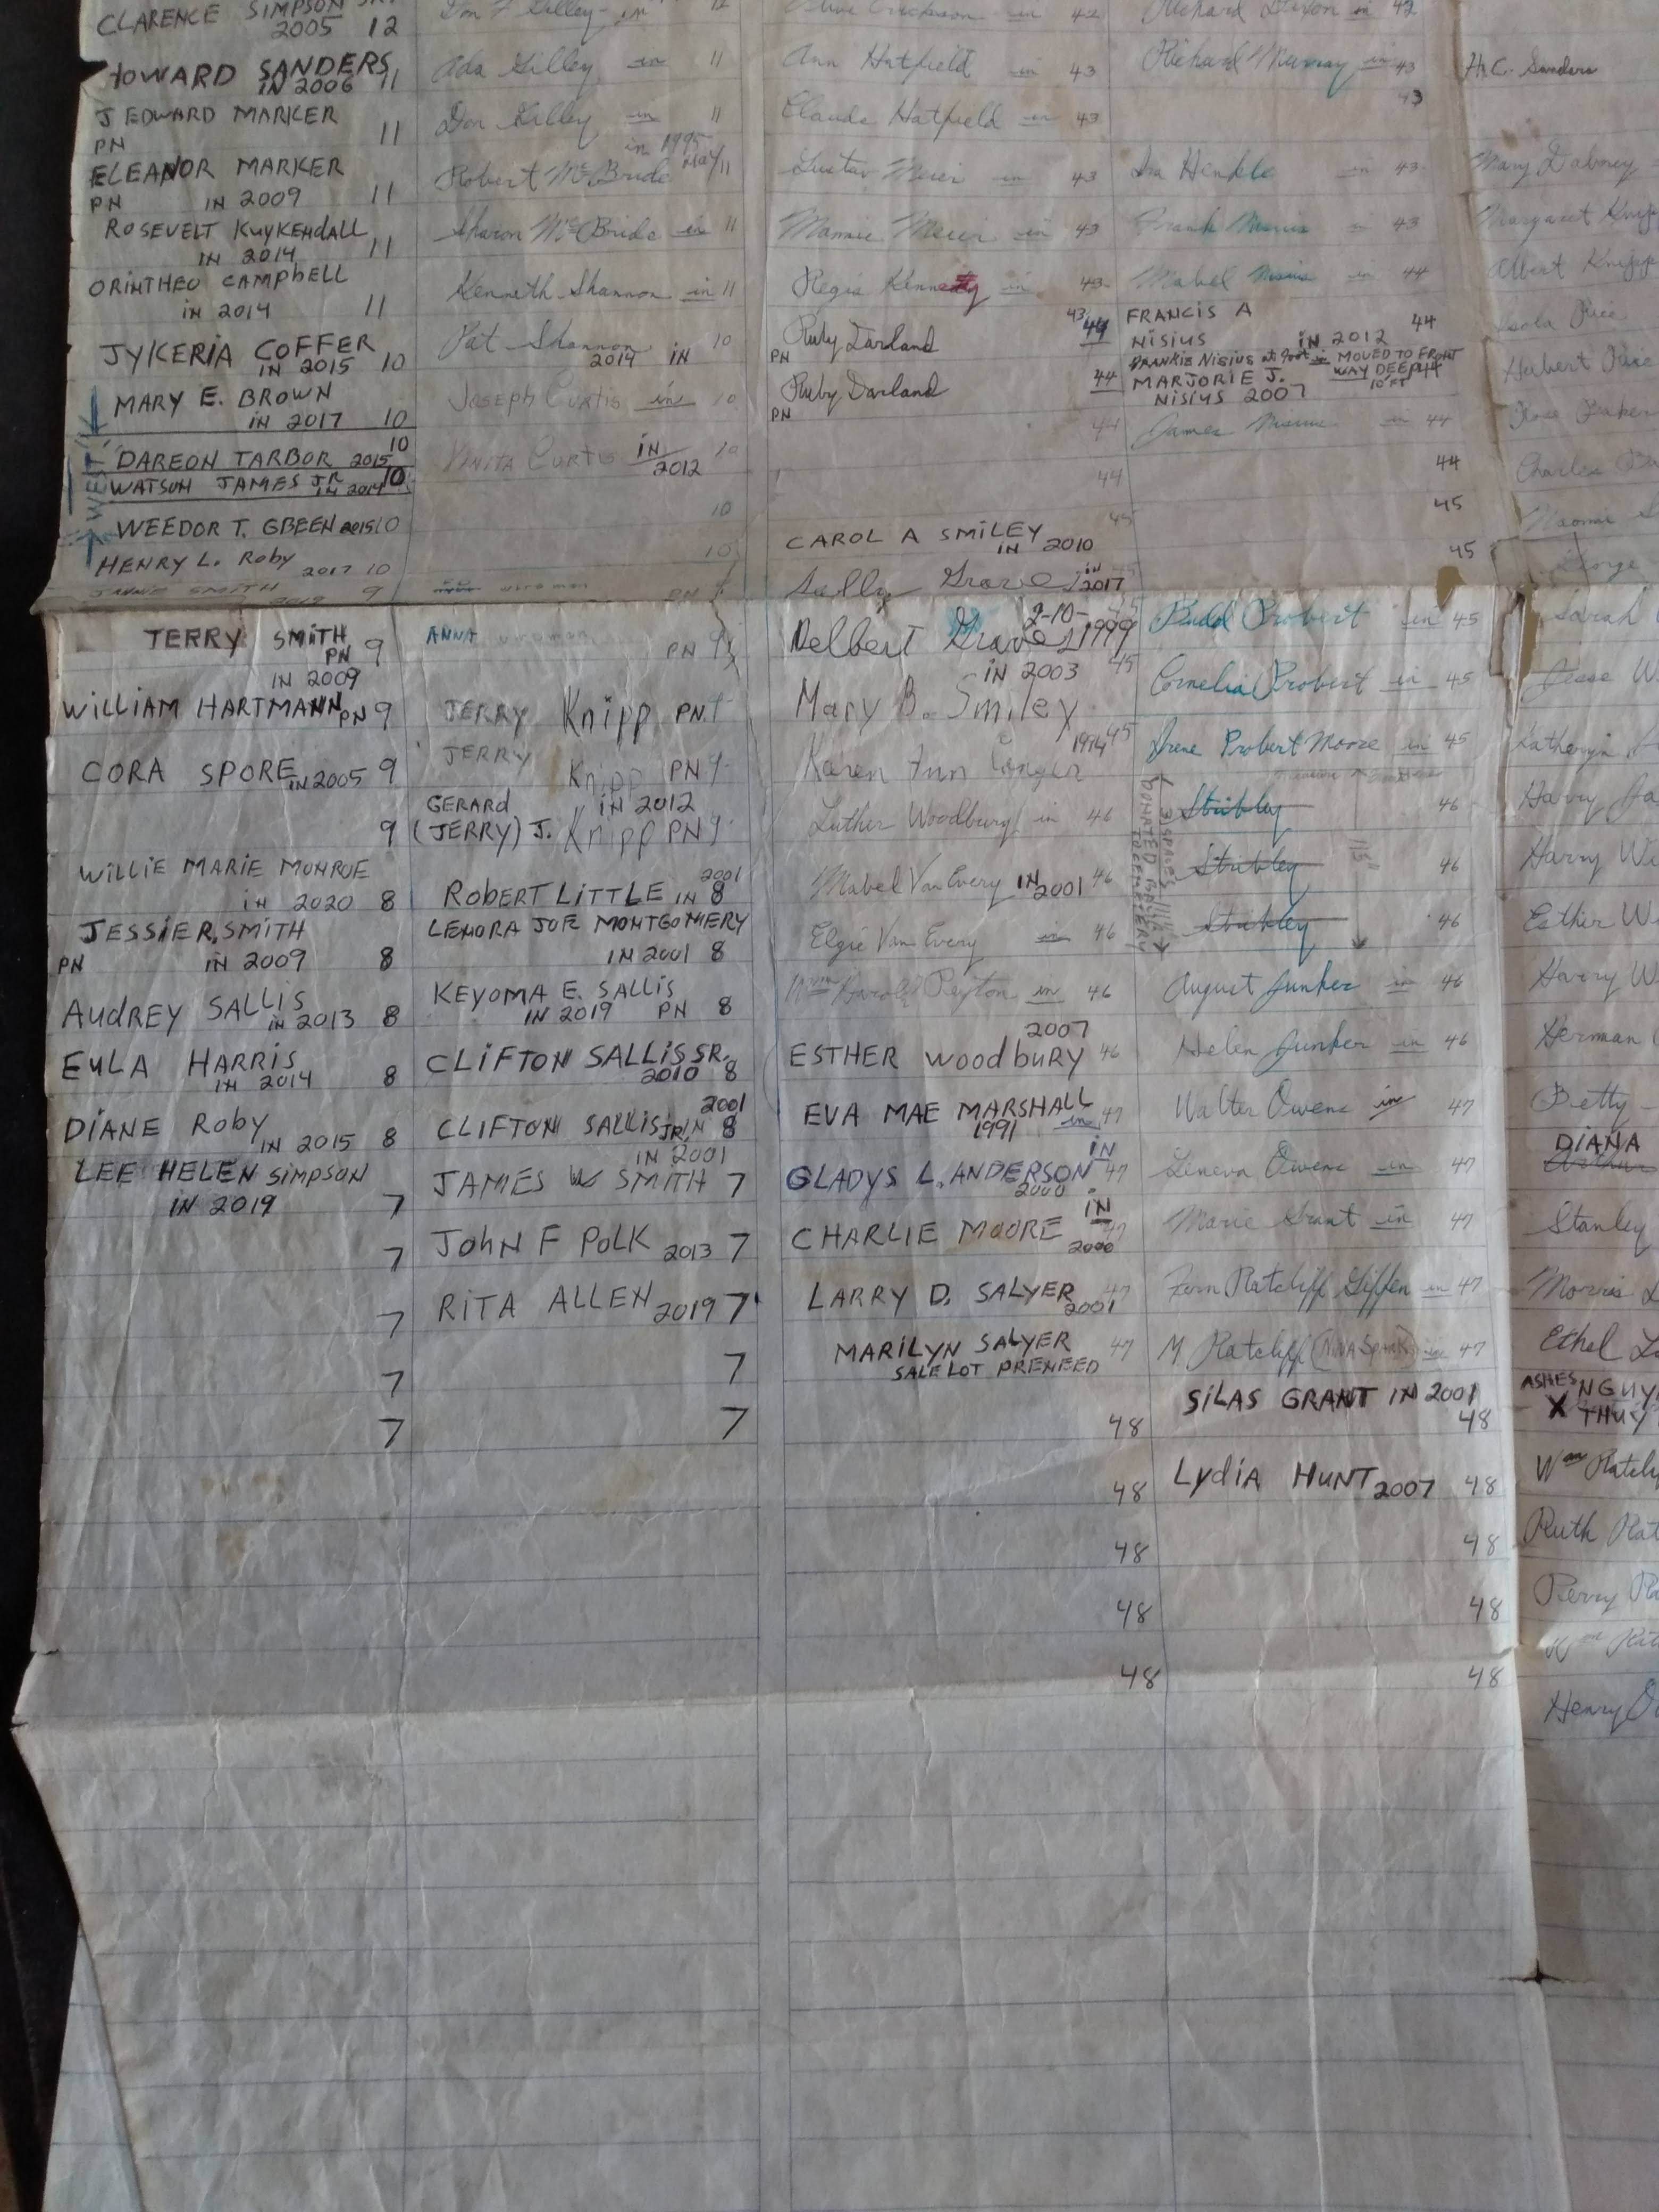 CLARENCE SIMPSON
2005 12
HOWARD SANDERS
IN 2006 11
J EDWARD MARKER
PN 11
ELEANOR MARKER
PN IN 2009 11
ROSEVELT KUYKENDALL
IN 2014 11
ORINTHEO CAMPBELL
in 2014 11
JYKERIA COFFER
IN 2015 10
MARY E. BROWN
in 2017 10
WEST
10
DAREON TARBOR 2015
WATSON JAMES JR 10
IN 2014
WEEDOR T. GBEEN 2015 10
HENRY L. Roby 2017 10
SMITH 9
TERRY SMITH
PN 9
IN 2009
WILLIAM HARTMANN PN 9
CORA SPORE IN 2005 9
9
WILLIE MARIE MONROE
in 2020 8
JESSIE R. SMITH
PN IN 2009 8
AUDREY SALLIS
IN 2013 8
EULA HARRIS
IN 2014 8
DIANE Roby
IN 2015 8
LEE HELEN SIMPSON
IN 2019 7
7
7
7
7
Ada Gilley in 11
Don Gilley in 11
in 1995
Robert McBride May 11
Sharon McBride in 11
Kenneth Shannon in 11
Pat Shannon 10
2014 IN
Joseph Curtis in 10
Anita Curtis IN 10
2012
10
10
PN 9
ANNA PN 9
JERRY Knipp PN 9
JERRY Knipp PN 9
GERARD IN 2012
(JERRY) J. Knipp PN 9
2001
ROBERT LITTLE IN 8
LENORA JOE MONTGOMERY
IN 2001 8
KEYOMA E. SALLIS
IN 2019 PN 8
CLIFTON SALLIS SR.
2010 8
2001
CLIFTON SALLIS JR. IN 8
IN 2001
JAMES W SMITH 7
JOHN F POLK 2013 7
RITA ALLEN 2019 7
7
7
42
Ann Hatfield in 43
Claude Hatfield in 43
Gustav Meier in 43
Mamie Meier in 43
Regis Kennedy in 43
43 44
Ruby Darland
PN
Ruby Darland 44
PN
44
44
45
CAROL A SMILEY
IN 2010
Sally Graves in 2017
2-10-1999
Delbert Graves 45
IN 2003 45
Mary B. Smiley
1994 45
Karen Fun Conger
Luther Woodbury in 46
Mabel Van Every IN 2001 46
Elgie Van Every in 46
Wm Harold Peyton in 46
2007
ESTHER Woodbury 46
EVA MAE MARSHALL
1991 in 47
IN
GLADYS L. ANDERSON 47
2000
IN
CHARLIE MOORE 47
2000
LARRY D. SALYER 47
2001
MARILYN SALYER 47
SALE LOT PRENEED
48
48
48
48
48
Richard Dixon in 42
Richard Murray in 43
43
Ira Henkle in 43
Frank Nisius in 43
Mabel Nisius in 44
FRANCIS A
NISIUS IN 2012 44
FRANKIE NISIUS at foot in MOVED TO FRONT
WAY DEEP 44
10 FT
MARJORIE J.
NISIUS 2007
James Nisius in 44
44
45
45
Budd Probert in 45
Cornelia Probert in 45
Irene Probert Moore in 45
3 SPACES
DONATED BACK
TO CEMETERY
Stribley 46
Stribley 46
Stribley 46
August Junker in 46
Helen Junker in 46
Walter Owens in 47
Geneva Owens in 47
Marie Grant in 47
Fern Ratcliff Giffen in 47
M. Ratcliff (NINA SPARKS) in 47
SILAS GRANT IN 2001
48
Lydia HUNT 2007 48
48
48
48
H.C. Sanders
Mary Dabney
Margaret Knipp
Albert Knipp
Isola Rice
Herbert Rice
Rose
Charles
Naomie
George
Sarah
Jesse W
Katheryn
Harry
Harry Wi
Esther W
Harry W
Herman
Betty
DIANA
Stanley
Morris
Ethel
ASHES NGUY
X THUY
Wm Ratcli
Ruth Rat
Perry Ra
Wm Rat
Henry